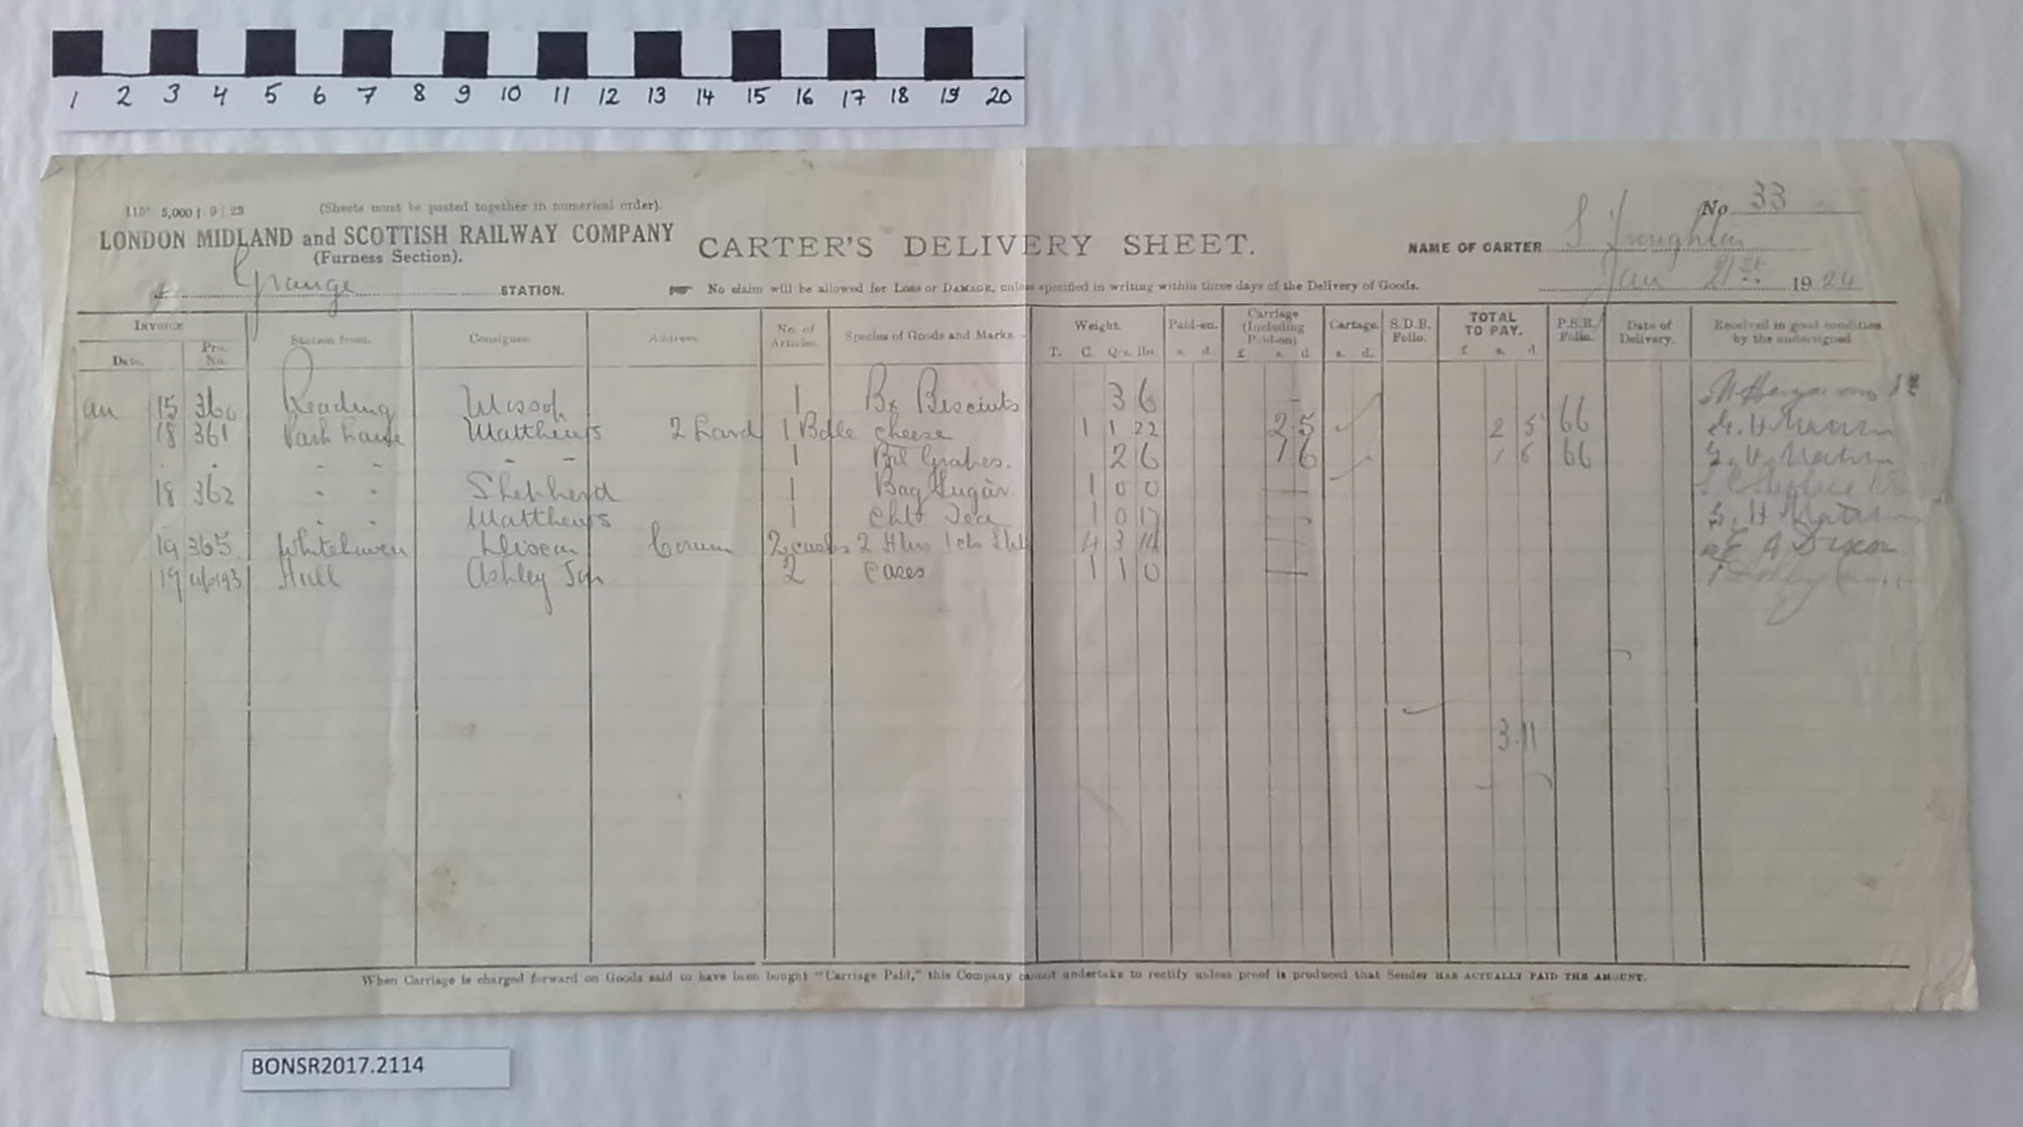 1 2 3 4 5 6 7 8 9 10 11 12 13 14 15 16 17 18 19 20
5,000 | 9 | 23 (Sheets must be pasted together in numerical order). No 33
LONDON MIDLAND and SCOTTISH RAILWAY COMPANY CARTER'S DELIVERY SHEET. NAME OF CARTER
(Furness Section).
Grange STATION. No claim will be allowed for Loss or Damage, unless specified in writing within three days of the Delivery of Goods. Jan 21st 1924
Invoice Station from. Consignee. Address. No. of Articles. Species of Goods and Marks. Weight. Paid-on. Carriage (Including Paid-on) Cartage. S.D.B. Folio. TOTAL TO PAY. P.S.B. Folio. Date of Delivery. Received in good condition by the undersigned
Date. Pro. No. T. C. Qrs. lbs. s. d. £ s. d. s. d. £ s. d.
an 15 360 Reading 1 Bx Biscuits 3 6
18 361 Park Lane Matthews 2 Lard 1 Bdle cheese 1 1 22 2 5 2 5 66
" " - - - - 1 Brl Grapes. 2 6 1 6 1 6 66
18 362 - - Shepherd 1 Bag Sugar 1 0 0
- - Matthews 1 Cht Tea 1 0 17
19 365 Whitehaven Dixon 2 casks 2 4 3 14 E A Dixon
19 Hull Ashley Son 2 cases 1 1 0
3.11
When Carriage is charged forward on Goods said to have been bought "Carriage Paid," this Company cannot undertake to rectify unless proof is produced that Sender HAS ACTUALLY PAID THE AMOUNT.
BONSR2017.2114